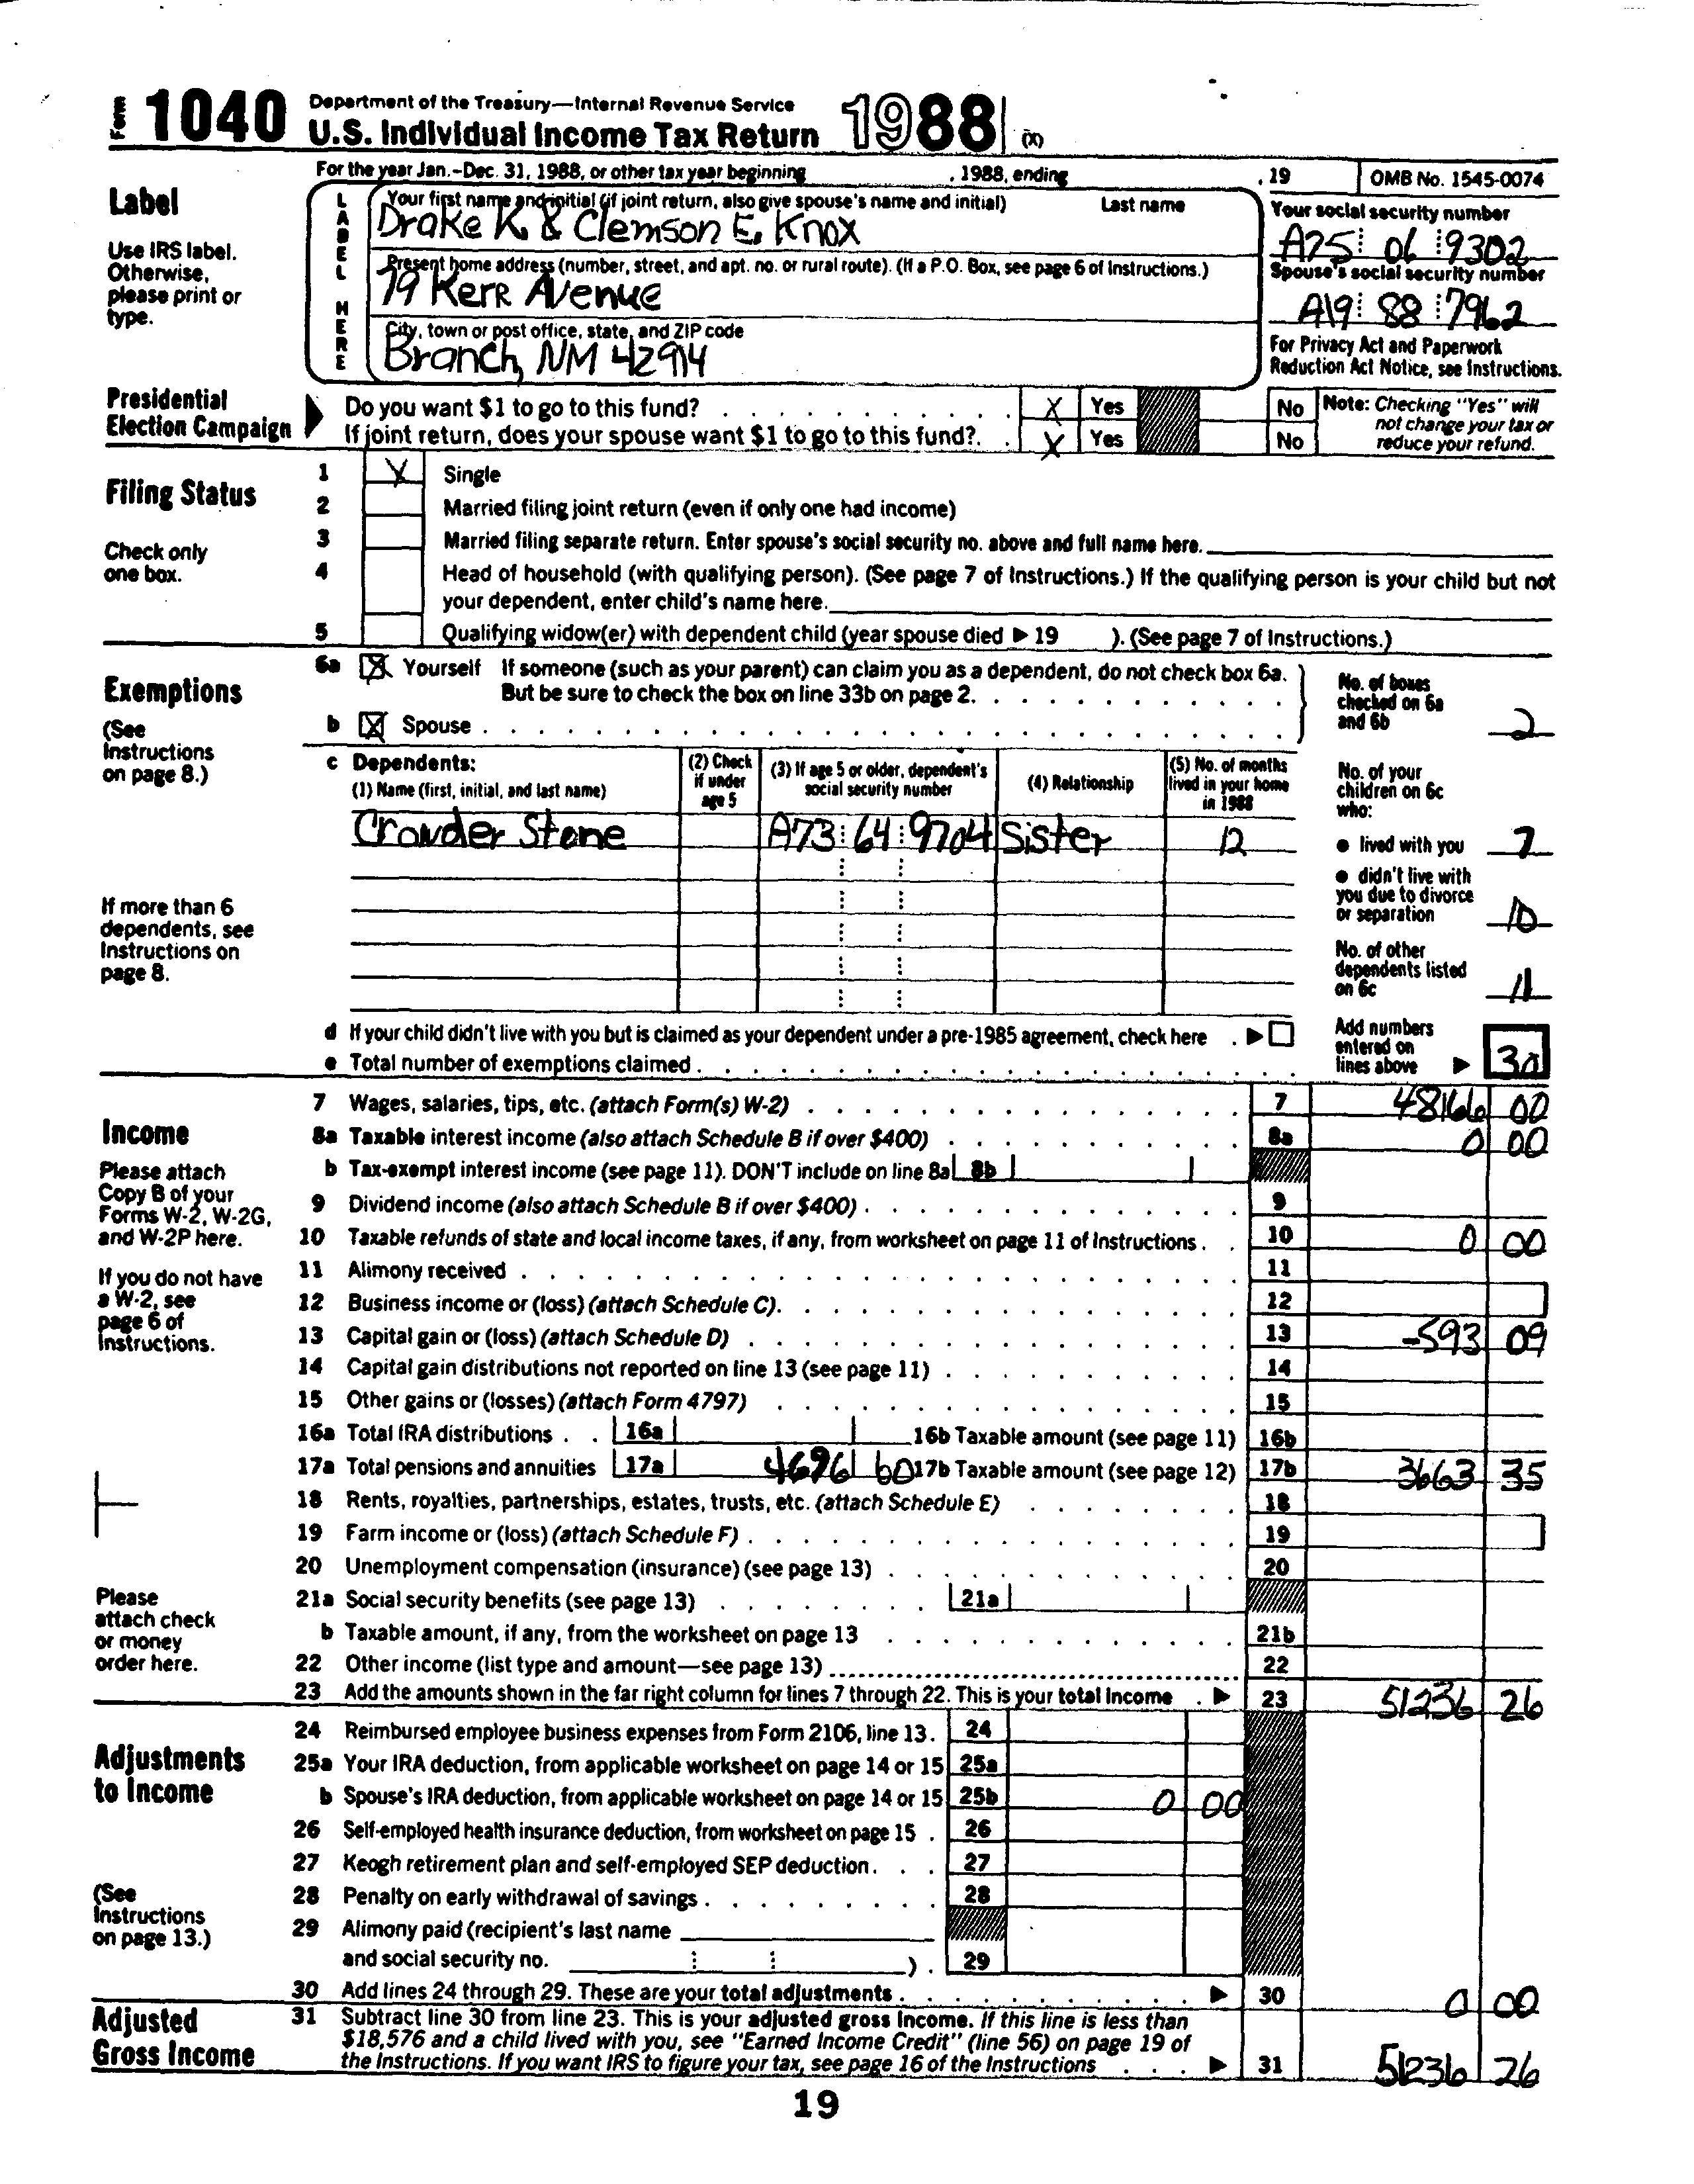 Form 1040 Department of the Treasury—Internal Revenue Service
U.S. Individual Income Tax Return 1988 (X)
For the year Jan.-Dec. 31, 1988, or other tax year beginning , 1988, ending , 19 OMB No. 1545-0074
Label
Use IRS label. Otherwise, please print or type.
LABEL HERE
Your first name and initial (if joint return, also give spouse's name and initial) Last name
Drake K. & Clemson E. Knox
Your social security number
A75 06 9302
Present home address (number, street, and apt. no. or rural route). (If a P.O. Box, see page 6 of Instructions.)
79 Kerr Avenue
Spouse's social security number
A19 88 7962
City, town or post office, state, and ZIP code
Branch, NM 42914
For Privacy Act and Paperwork Reduction Act Notice, see Instructions.
Presidential Election Campaign
Do you want $1 to go to this fund? X Yes No
If joint return, does your spouse want $1 to go to this fund?. X Yes No
Note: Checking "Yes" will not change your tax or reduce your refund.
Filing Status
Check only one box.
1 X Single
2 Married filing joint return (even if only one had income)
3 Married filing separate return. Enter spouse's social security no. above and full name here.
4 Head of household (with qualifying person). (See page 7 of Instructions.) If the qualifying person is your child but not
your dependent, enter child's name here.
5 Qualifying widow(er) with dependent child (year spouse died ▶ 19 ). (See page 7 of Instructions.)
Exemptions
(See Instructions on page 8.)
6a X Yourself If someone (such as your parent) can claim you as a dependent, do not check box 6a.
But be sure to check the box on line 33b on page 2.
b X Spouse
No. of boxes checked on 6a and 6b 2
c Dependents:
(1) Name (first, initial, and last name)
(2) Check if under age 5
(3) If age 5 or older, dependent's social security number
(4) Relationship
(5) No. of months lived in your home in 1988
Crowder Stone A73 64 9704 Sister 12
If more than 6 dependents, see Instructions on page 8.
No. of your children on 6c who:
● lived with you 7
● didn't live with you due to divorce or separation 10
No. of other dependents listed on 6c 11
d If your child didn't live with you but is claimed as your dependent under a pre-1985 agreement, check here ▶
e Total number of exemptions claimed
Add numbers entered on lines above ▶ 30
Income
Please attach Copy B of your Forms W-2, W-2G, and W-2P here.
If you do not have a W-2, see page 6 of Instructions.
7 Wages, salaries, tips, etc. (attach Form(s) W-2) 7 48166 00
8a Taxable interest income (also attach Schedule B if over $400) 8a 0 00
b Tax-exempt interest income (see page 11). DON'T include on line 8a 8b
9 Dividend income (also attach Schedule B if over $400) 9
10 Taxable refunds of state and local income taxes, if any, from worksheet on page 11 of Instructions 10 0 00
11 Alimony received 11
12 Business income or (loss) (attach Schedule C) 12
13 Capital gain or (loss) (attach Schedule D) 13 -593 09
14 Capital gain distributions not reported on line 13 (see page 11) 14
15 Other gains or (losses) (attach Form 4797) 15
16a Total IRA distributions 16a 16b Taxable amount (see page 11) 16b
17a Total pensions and annuities 17a 4696 60 17b Taxable amount (see page 12) 17b 3663 35
18 Rents, royalties, partnerships, estates, trusts, etc. (attach Schedule E) 18
19 Farm income or (loss) (attach Schedule F) 19
20 Unemployment compensation (insurance) (see page 13) 20
21a Social security benefits (see page 13) 21a
b Taxable amount, if any, from the worksheet on page 13 21b
22 Other income (list type and amount—see page 13) 22
23 Add the amounts shown in the far right column for lines 7 through 22. This is your total income ▶ 23 51236 26
Please attach check or money order here.
Adjustments to Income
(See Instructions on page 13.)
24 Reimbursed employee business expenses from Form 2106, line 13. 24
25a Your IRA deduction, from applicable worksheet on page 14 or 15 25a
b Spouse's IRA deduction, from applicable worksheet on page 14 or 15 25b 0 00
26 Self-employed health insurance deduction, from worksheet on page 15 26
27 Keogh retirement plan and self-employed SEP deduction 27
28 Penalty on early withdrawal of savings 28
29 Alimony paid (recipient's last name
and social security no. ) 29
30 Add lines 24 through 29. These are your total adjustments ▶ 30 0 00
Adjusted Gross Income
31 Subtract line 30 from line 23. This is your adjusted gross income. If this line is less than
$18,576 and a child lived with you, see "Earned Income Credit" (line 56) on page 19 of
the Instructions. If you want IRS to figure your tax, see page 16 of the Instructions ▶ 31 51236 26
19